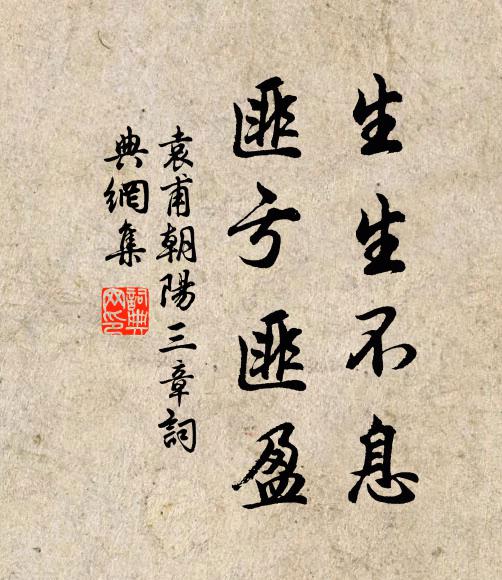 生生不息
匪亏匪盈
袁甫朝陽三章詞
典網集
詞典
网印